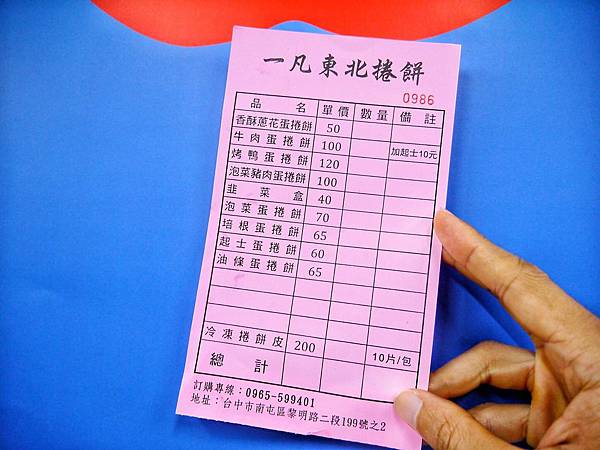 一凡東北捲餅
0986
品名 單價 數量 備註
香酥蔥花蛋捲餅 50
牛肉蛋捲餅 100 加起士10元
烤鴨蛋捲餅 120
泡菜豬肉蛋捲餅 100
韭菜盒 40
泡菜蛋捲餅 70
培根蛋捲餅 65
起士蛋捲餅 60
油條蛋捲餅 65
冷凍捲餅皮 200 10片/包
總計
訂購專線：0965-599401
地址：台中市南屯區黎明路二段199號之2